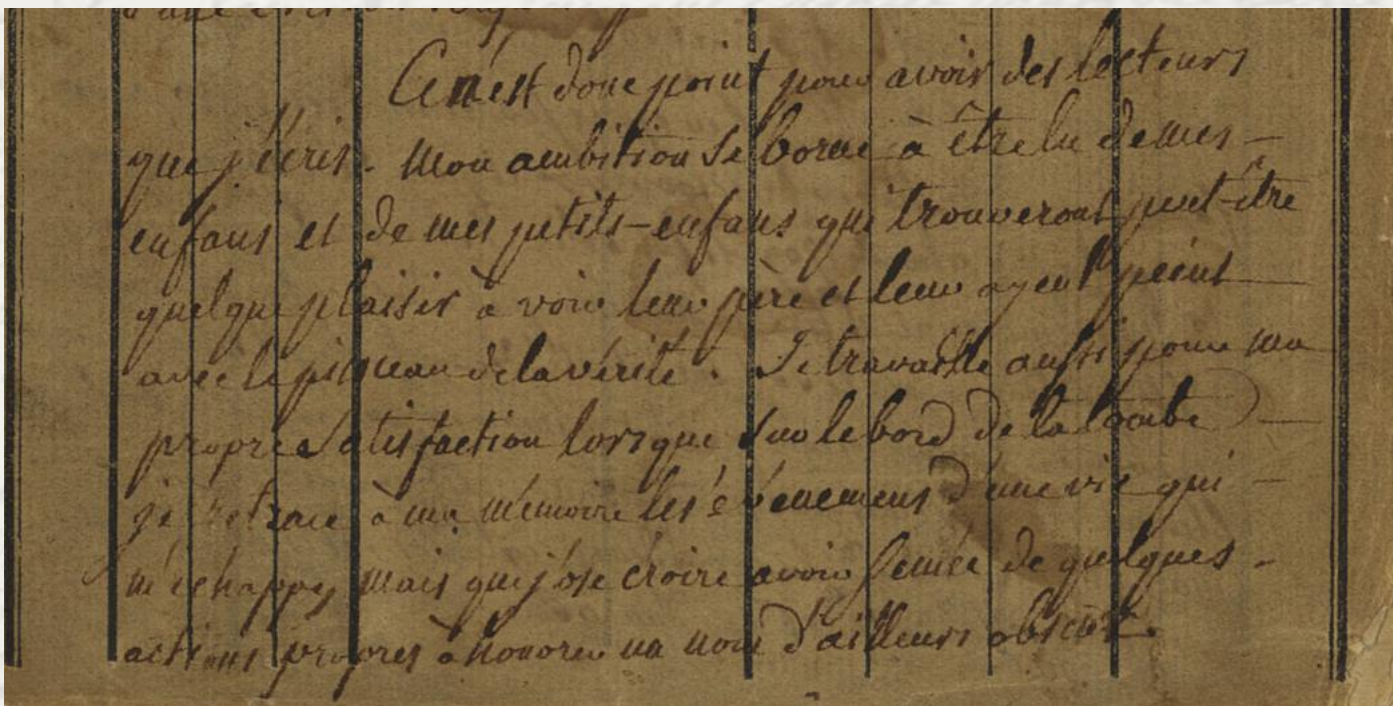 d'une
Ce n'est donc point pour avoir des lecteurs
que j'écris. Mon ambition se borne à être lu de mes -
enfans et de mes petits-enfans qui trouveront peut-être
quelque plaisir à voir leur père et leur ayeul peint
avec le pinceau de la vérité. Je travaille aussi pour ma
propre satisfaction lorsque sur le bord de la tombe
je retrace à ma mémoire les évènemens d'une vie qui -
m'échappe, mais que j'ose croire avoir semée de quelques -
actions propres à honorer un nom d'ailleurs obscur.